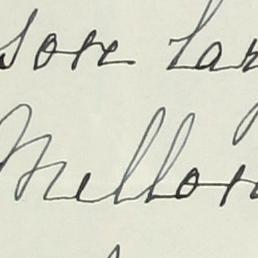 sore lar
Mellor